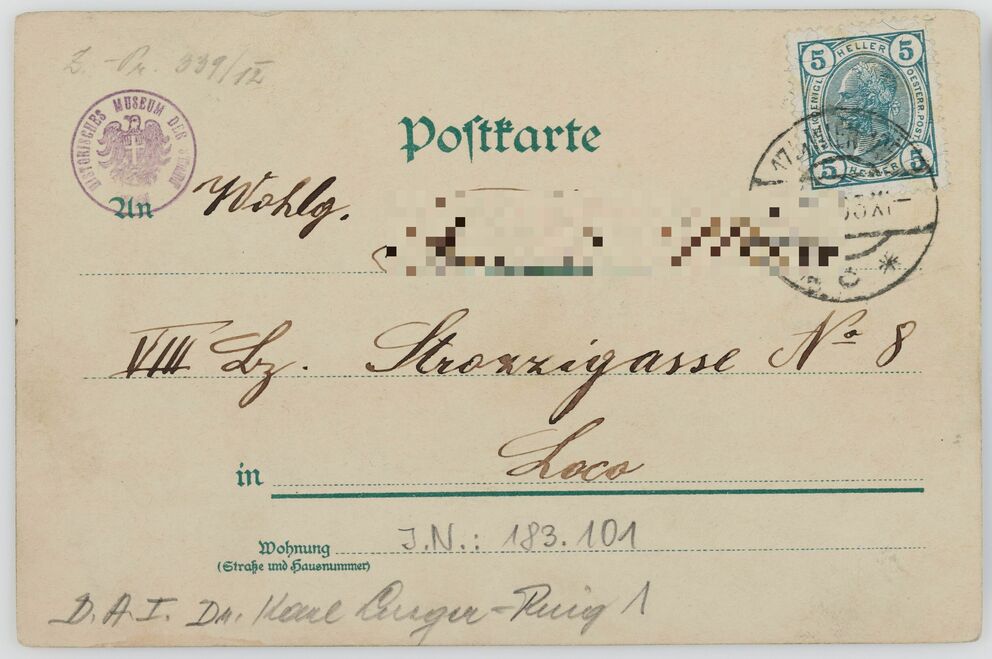 Z.-Pr. 339/12
HISTORISCHES MUSEUM DER STADT
5 HELLER 5
OESTERR. POST.
5 HELLER 5
Postkarte
An Wohlg.
VIII Bz. Strozzigasse No 8
in Loco
Wohnung J.N.: 183.101
(Straße und Hausnummer)
D.A.I. Dr. Karl Lueger-Ring 1